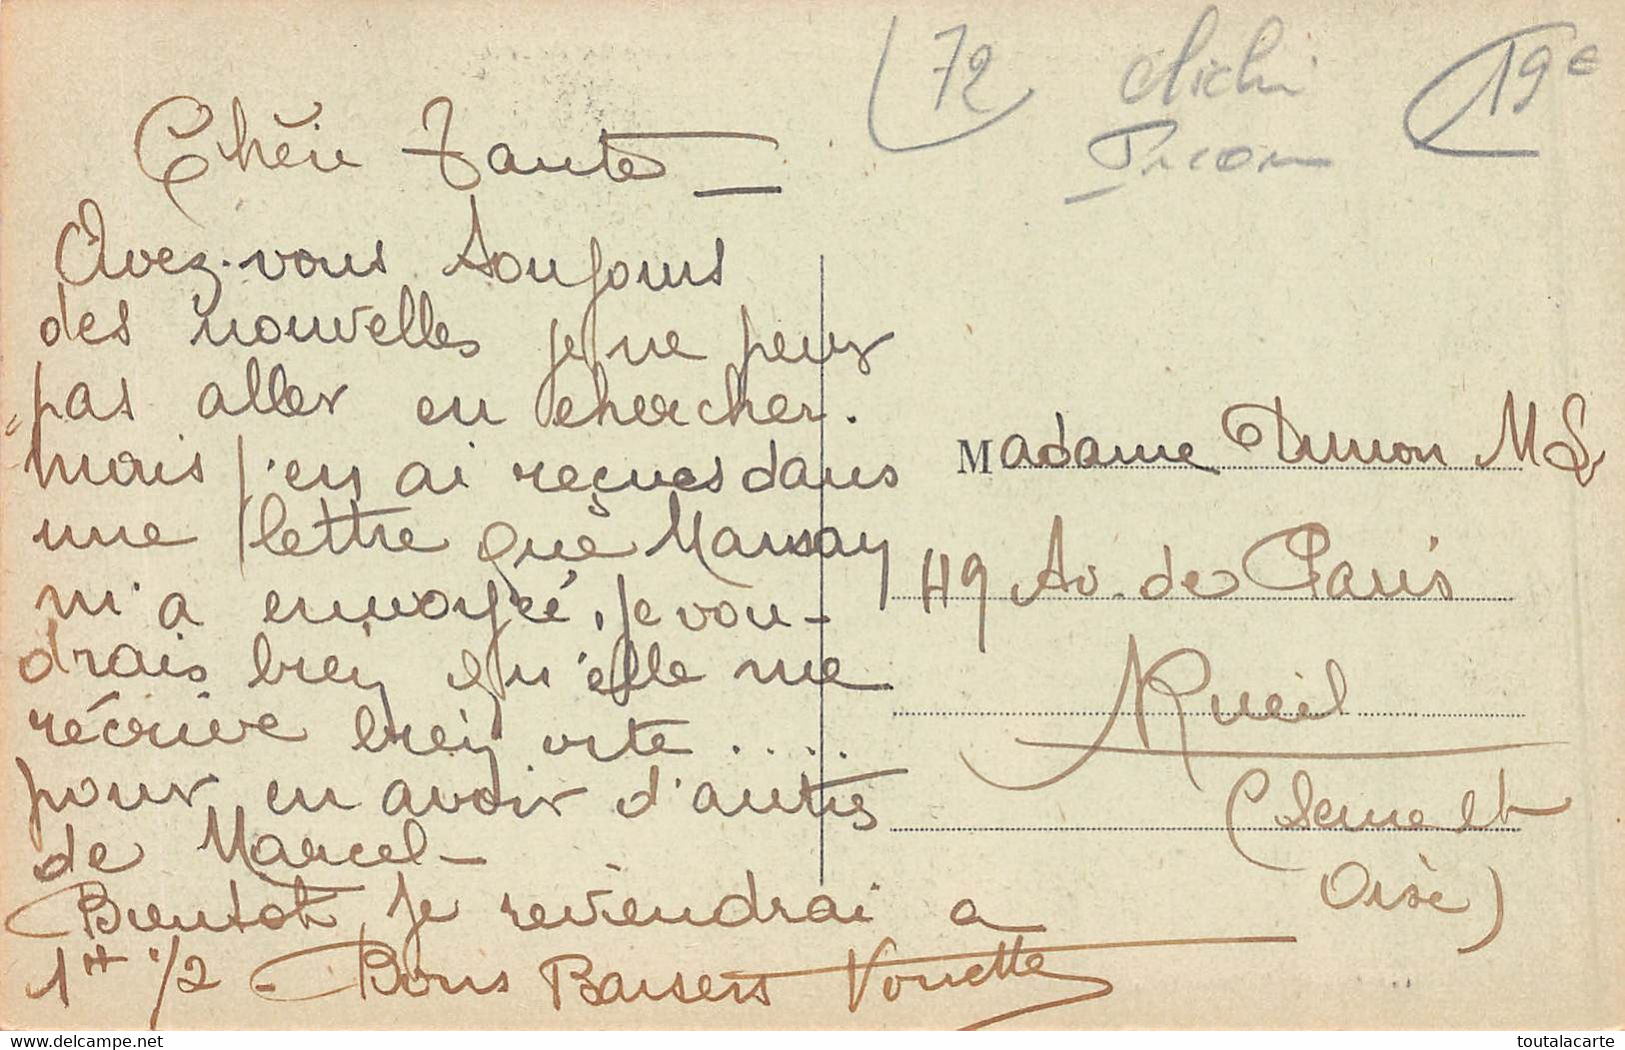 72
19€
Chère Tante
Avez-vous toujours
des nouvelles je ne peux
pas aller en chercher.
mais j'en ai reçues dans
une lettre que
m'a envoyée, je vou-
drais bien qu'elle me
récrive bien vite .....
pour en avoir d'autres
de Marcel -
Bientot je reviendrai a
1H 1/2 - Bons Baisers
Madame
119 Av. de Paris
Rueil
(Seine et
Oise)
www.delcampe.net
toutalacarte